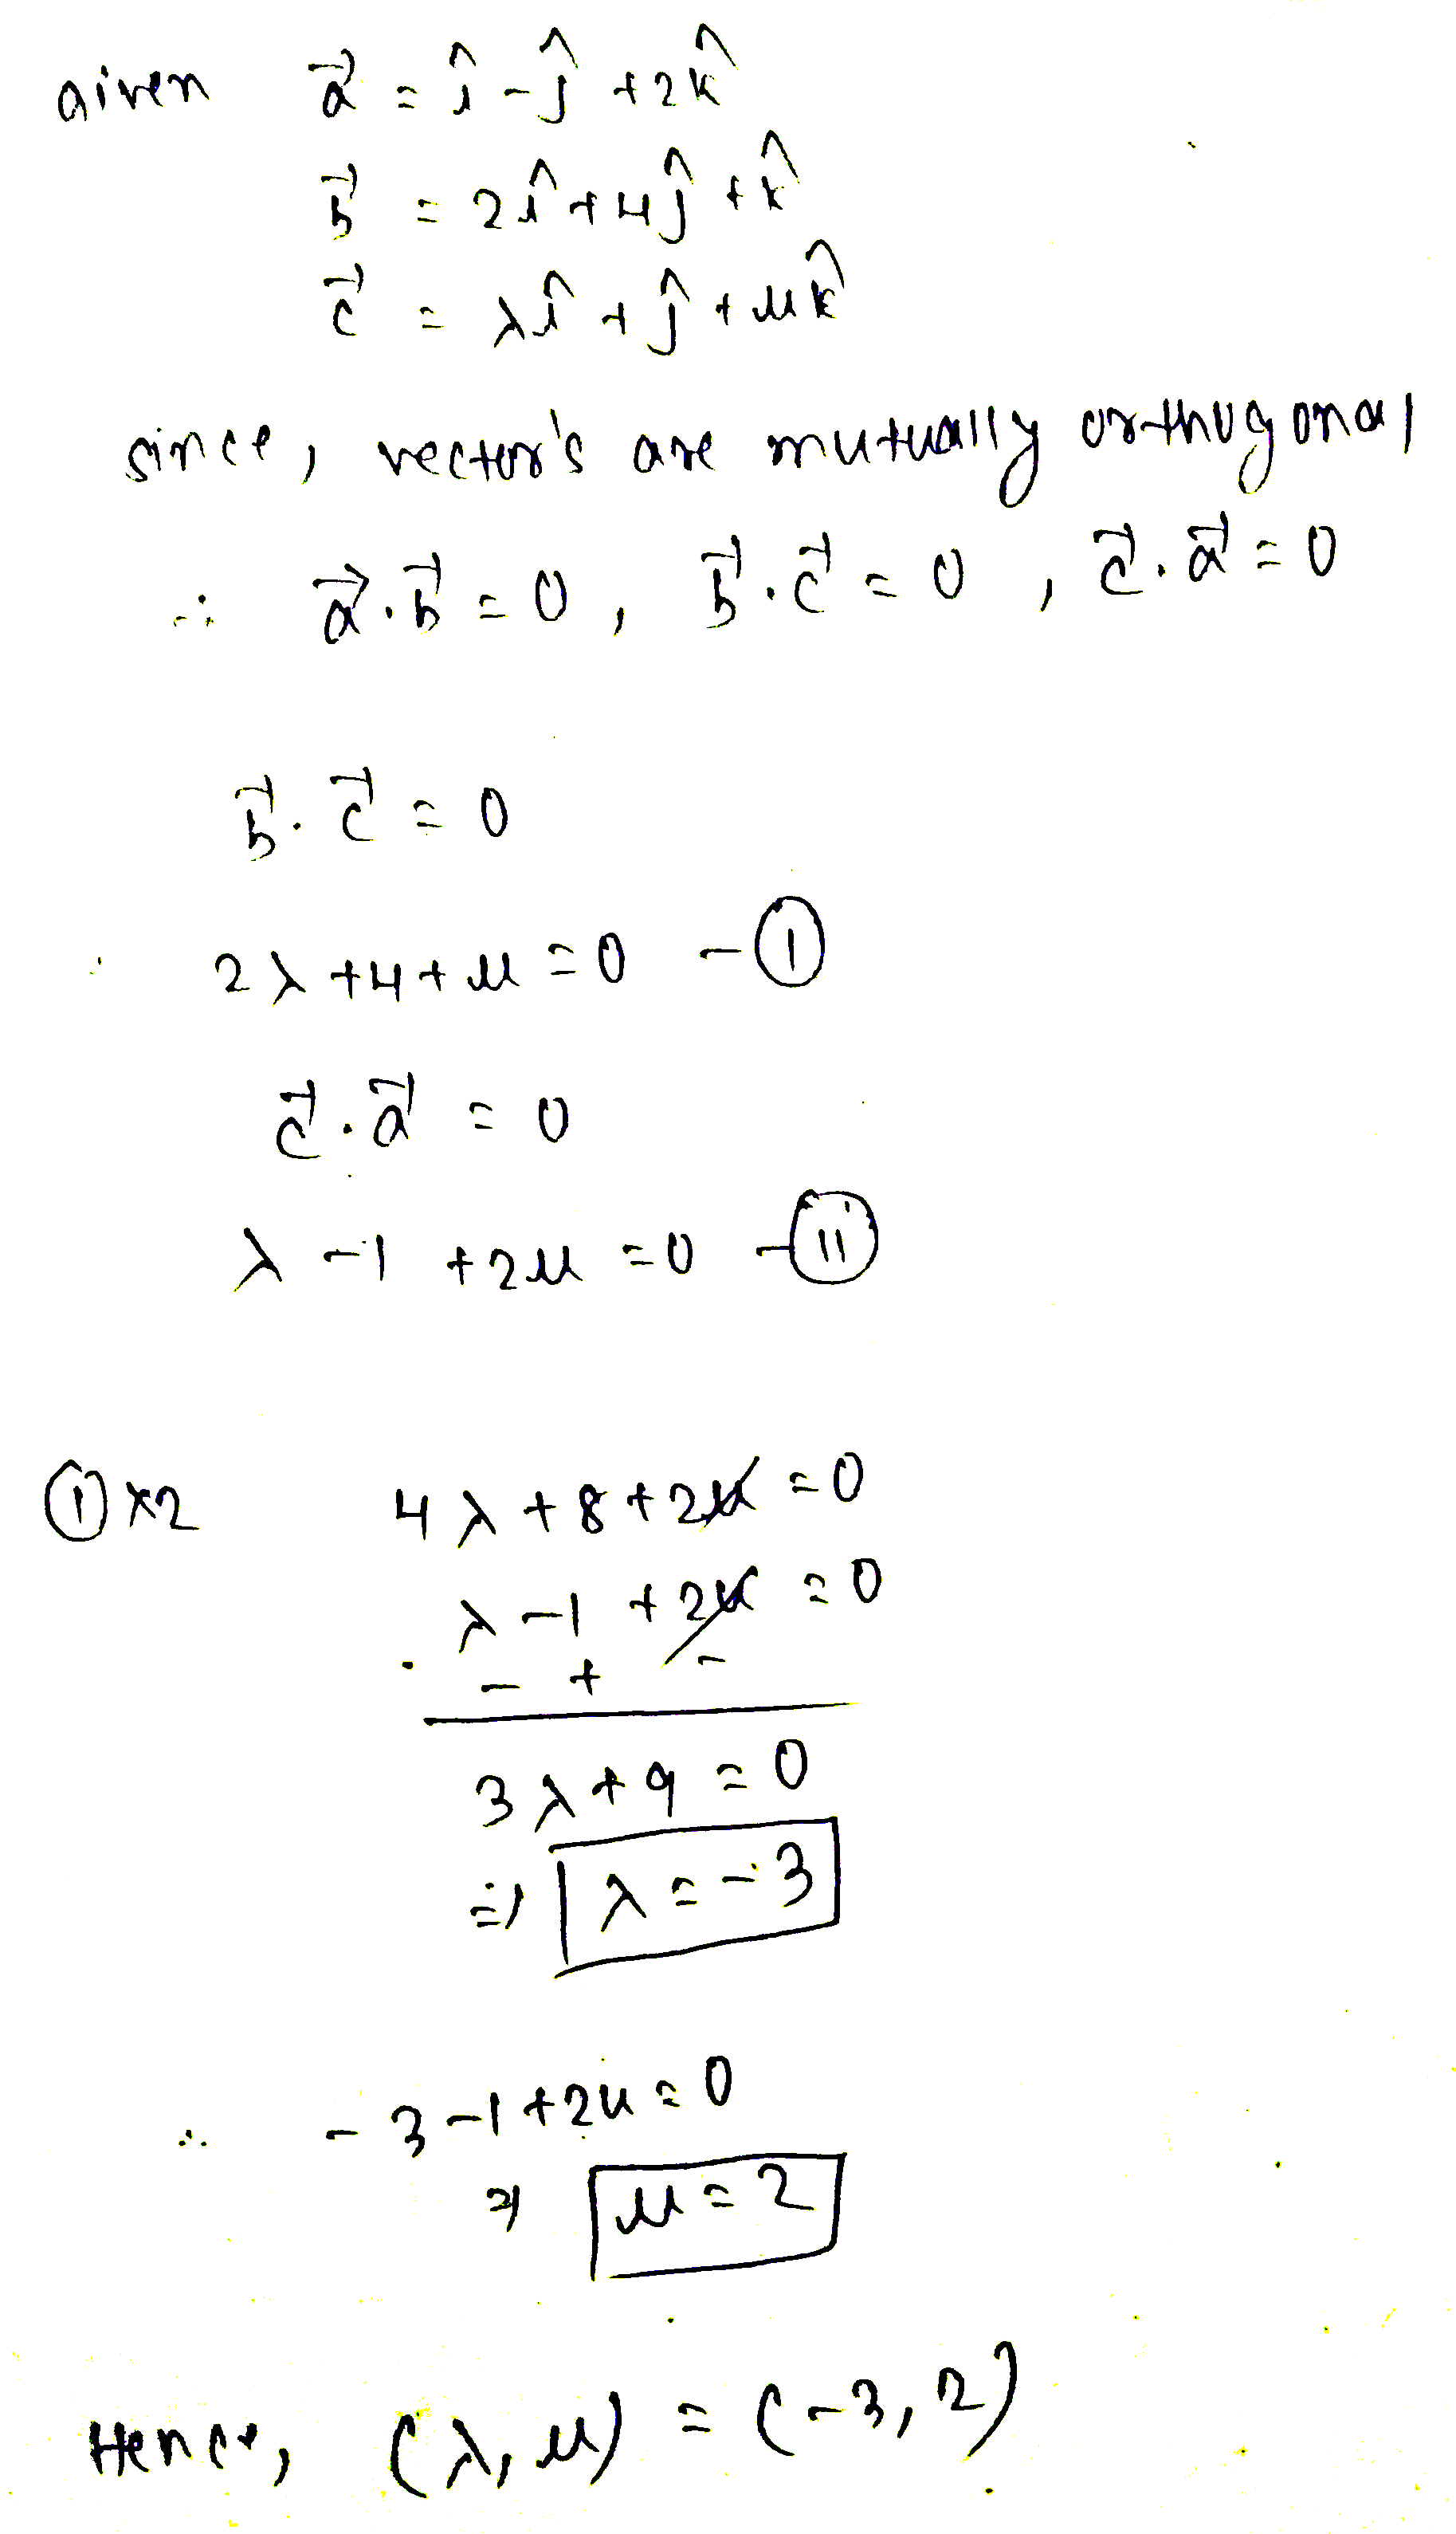 given a⃗ = î - ĵ + 2k̂
b⃗ = 2î + 4ĵ + k̂
c⃗ = λî + ĵ + μk̂
since, vector's are mutually orthogonal
∴ a⃗.b⃗ = 0, b⃗.c⃗ = 0, c⃗.a⃗ = 0
b⃗.c⃗ = 0
2λ + 4 + μ = 0 - ①
c⃗.a⃗ = 0
λ - 1 + 2μ = 0 - ⑪
① ×2 4λ + 8 + 2μ = 0
λ - 1 + 2μ = 0
- + -
3λ + 9 = 0
⇒ λ = -3
∴ -3 - 1 + 2μ = 0
⇒ μ = 2
Hence, (λ, μ) = (-3, 2)